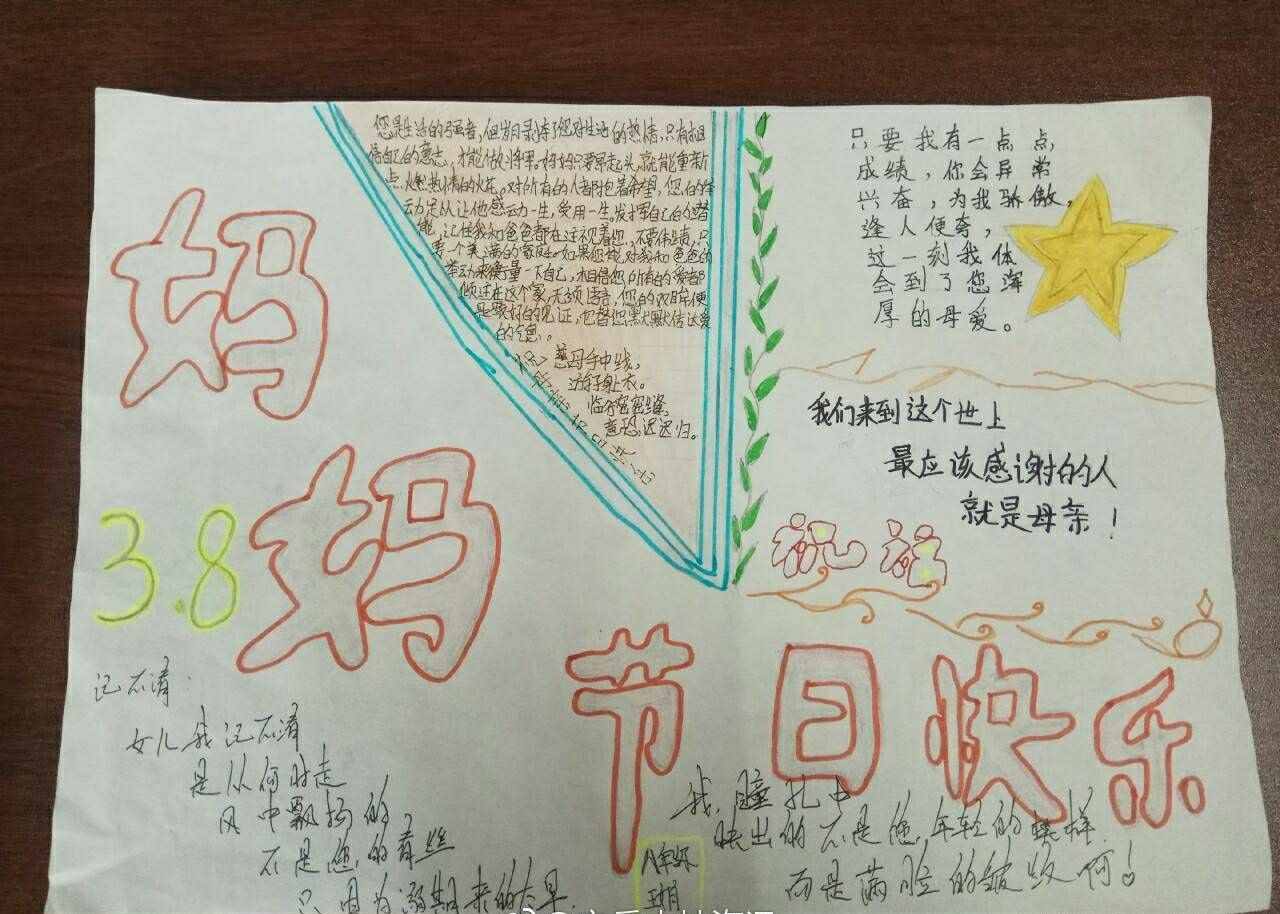 妈
妈
3.8
节日快乐
您是生活的强者,但岁月录掉了您对生活的热情,只有相
信自己的意志,才能做到将军。妈妈只要昂起头,就能重新
点燃热情的火花。对所有的人都抱着希望,您的
动足以让他感动一生,受用一生。发挥自己的
能,让任我和爸爸都在注视着您,不要伟绩,只
要一个美满的家庭。如果您能对我和爸爸的
举动来衡量一下自己,相信您所有的爱都
倾注在这个家,无须语言,您的衣
是最好的见证,它替您默默传达爱
的气息。
慈母手中线,
游子身上衣。
临行密密缝,
意恐迟迟归。
只要我有一点点
成绩,你会异常
兴奋,为我骄傲,
逢人便夸,
过一刻我体
会到了您浑
厚的母爱。
我们来到这个世上
最应该感谢的人
就是母亲!
祝福
记不清.
女儿我记不清
是从何时走
风中飘扬的
不是您的青丝
只因为
来的太早
我,瞳孔中
映出的不是您年轻的模样
而是满脸的皱纹何!